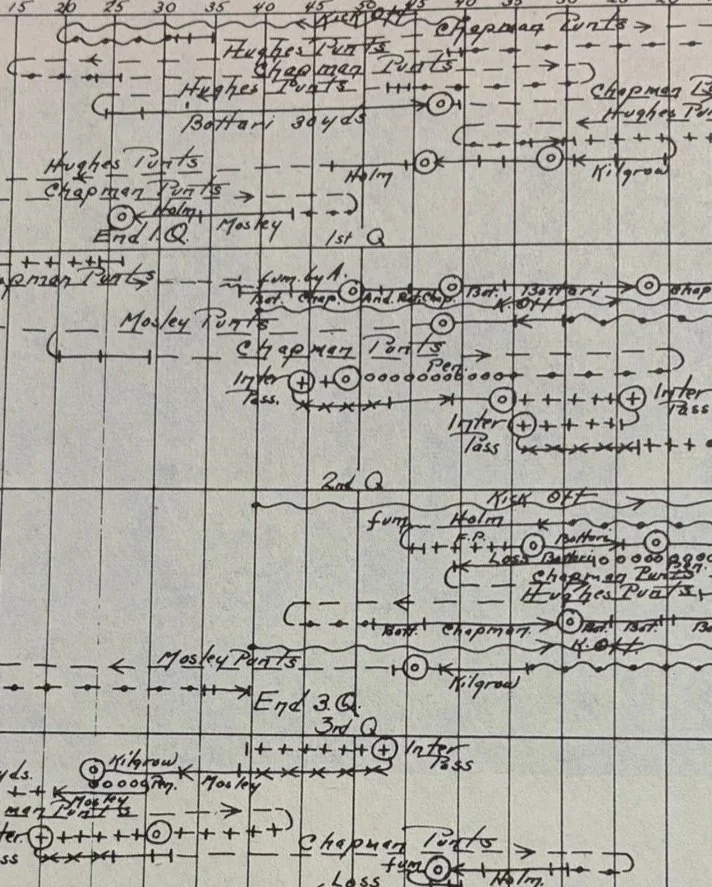 15 20 25 30 35 40 45 50 45 40 35 30 25 20
Kick Off
Chapman Punts
Hughes Punts
Chapman Punts
Hughes Punts
Chapman
Bottari 30 yds
Hughes Pun
Hughes Punts
Holm
Kilgrow
Chapman Punts
Holm
Mosley
End 1.Q.
1st Q
pman Punts
fum. by A.
Bot. Chap. And. Bot. Chap. Bot. Bottari Chap
K. Off
Mosley Punts
Chapman Punts
Pen.
Inter
Pass.
Inter
Pass
Inter
Pass
2nd Q
Kick Off
fum
Holm
F.P.
Bottari
Loss
Bottari
Pen.
Chapman Punts
Hughes Punts
Bott. Chapman. Bot. Bot. Bo
K. Off
Mosley Punts
Kilgrow
End 3.Q.
3rd Q
Inter
Pass
Kilgrow
yds.
Mosley
Pen.
Mosley
man Punts
ter.
ss
Chapman Punts
fum
Holm
Loss